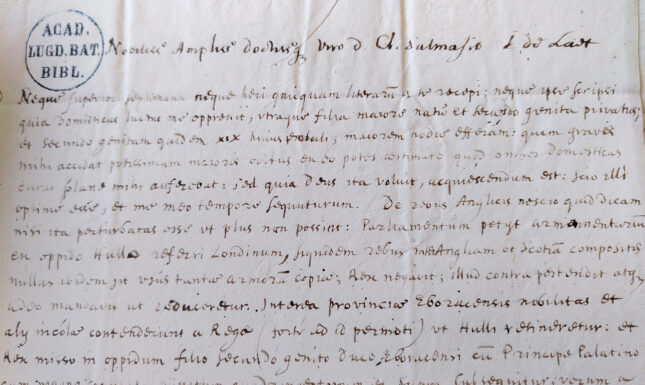 ACAD.
LUGD. BAT.
BIBL.
Nobiliss. Ampliss. doctissq viro D. Cl. Salmasio I de Laet
Neque superiori septimana neque heri quicquam literarū a te recepi; neque ipse scripsi
quia domesticus luctus me oppressit, utraque filia maiore natu et secundo genita privatus;
et secundo genitam quidem xix huius extuli; maiorem hodie efferam: quam gravis
mihi accidat potissimum maioris obitus ex eo potes aestimare quod omnes domesticas
curas solane mihi auferebat: sed quia Deus ita voluit, acquiescendum est: scio illi
optime esse, et me meo tempore sequuturum. De rebus Anglicis nescio quid dicam
nisi ita perturbatas esse ut plus non possint: Parliamentum petyt armamentarium
ex oppido Hull referri Londinum, siquidem rebus Angliam et Scotiam compositis
nullus ibidem sit usus tantae armorū copiae; Rex negavit; illud contra pertendit atq
adeo mandavit ut reduceretur. Interea provinciae Eboracensis nobilitas et
aly incolae contenderunt a Rege (forte ad id permoti) ut Hulli retineretur: et
Rex misso in oppidum filio secundo genito Duce Eboracensi cū Principe Palatino
subsequitur: verum a